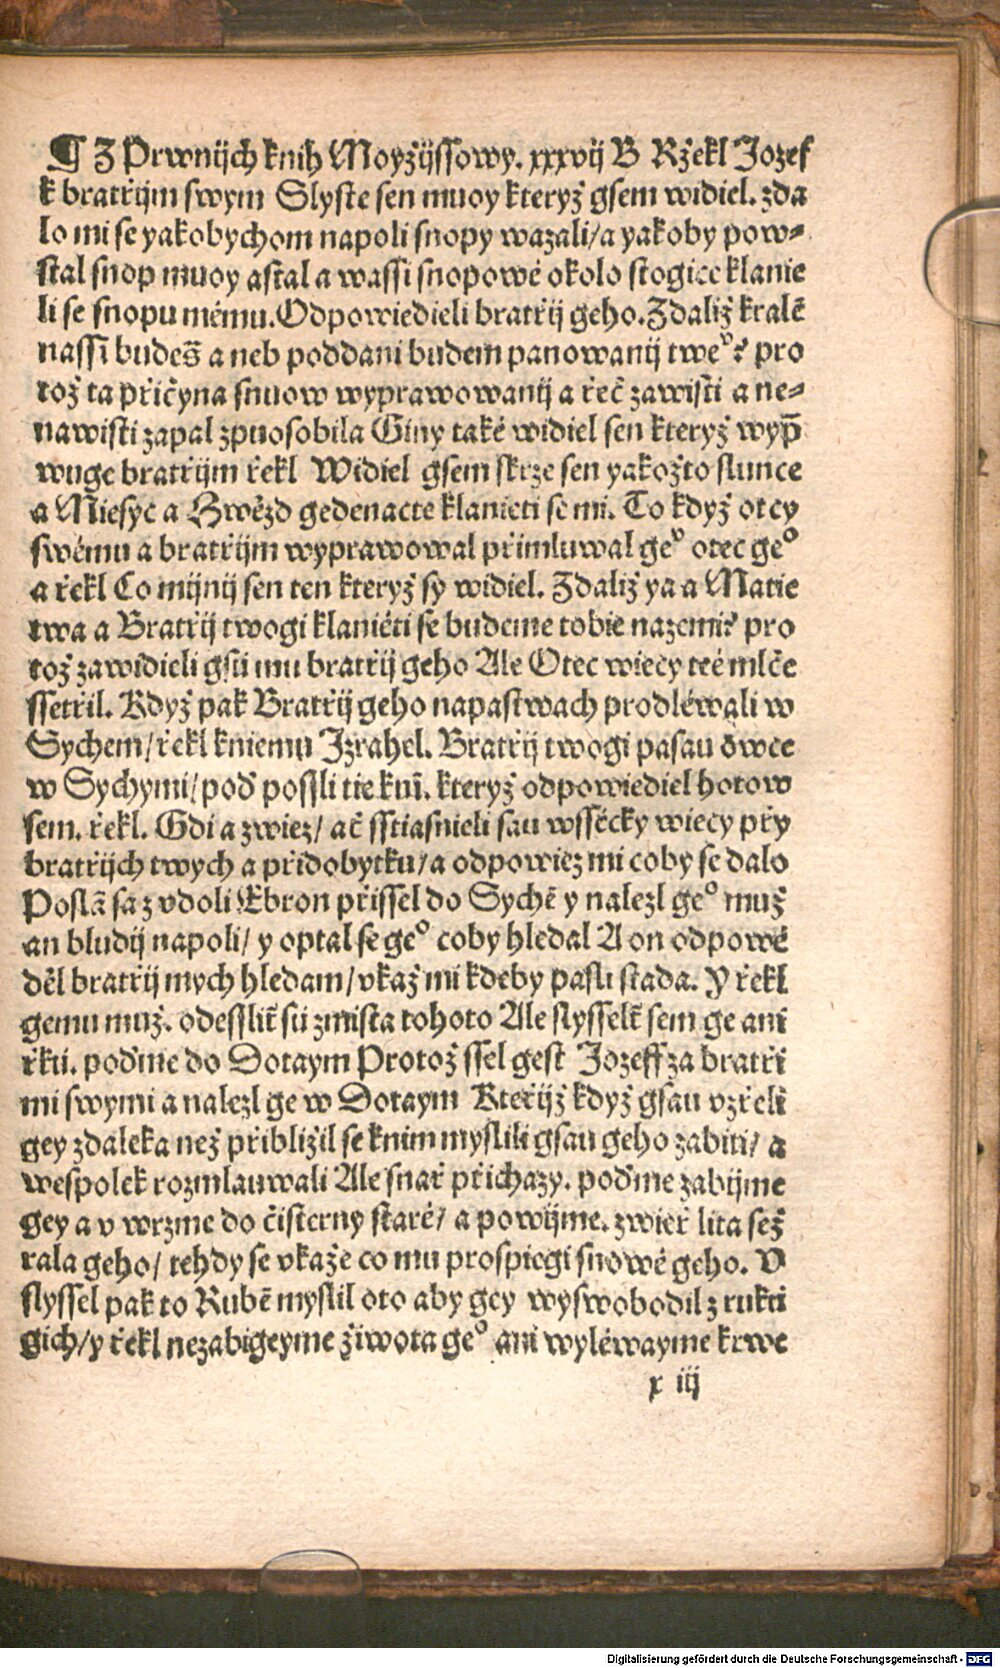 ¶ Z Prwnijch knih Moyžijssowy. xxxvij B Ržekl Jozef
k bratřijm swym Slyste sen muoy kteryž gsem widiel. zda
lo mi se yakobychom napoli snopy wazali/a yakoby pow⸗
stal snop muoy astal a wassi snopowé okolo stogice klanie
li se snopu mému. Odpowiedieli bratřij geho. Zdaliž kralē
nassi budeš a neb poddani budem panowanij tweᵒ? pro
tož ta přičyna snuow wyprawowanij a řeč zawisti a ne⸗
nawisti zapal zpuosobila Giny také widiel sen kteryž wyp̄
wuge bratřijm řekl Widiel gsem skrze sen yakožto slunce
a Miesyc a Hwězd gedenacte klanieti se mi. To když otcy
swému a bratřijm wyprawowal přimluwal geᵒ otec geᵒ
a řekl Co mijnij sen ten kteryž sy widiel. Zdaliž ya a Matie
twa a Bratřij twogi klaniěti se budeme tobie nazemi? pro
tož zawidieli gsu mu bratřij geho Ale Otec wiecy teé mlče
ssetřil. Když pak Bratřij geho napastwach prodléwali w
Sychem/řekl kniemu Jzrahel. Bratřij twogi pasau owce
w Sychymi/poď possli tie knī. kteryž odpowiediel hotow
sem. řekl. Gdi a zwiez/ ač sstiasnieli sau wssěcky wiecy při
bratřijch twych a přidobytku/a odpowiez mi coby se dalo
Poslā sa z vdoli Ebron přissel do Sychē y nalezl geᵒ muž
an bludij napoli/ y optal se geᵒ coby hledal A on odpowě
děl bratřij mych hledam/vkaž mi kdeby pasli stada. Y řekl
gemu muž. odesslit̄ sú zmista tohoto Ale slysselt̄ sem ge ani
řku. poďme do Dotaym Protož ssel gest Jozeff za bratři
mi swymi a nalezl ge w Dotaym Kteřijž když gsau vzřeli
gey zdaleka než přibližil se knim myslili gsau geho zabiti/ a
wespolek rozmlauwali Ale snař přichazy. poďme zabijme
gey a v wrzme do čisterny staré/ a powijme. zwieř lita sež
rala geho/ tehdy se vkaže co mu prospiegi snowé geho. V
slyssel pak to Rubē myslil oto aby gey wyswobodil z rukú
gich/y řekl nezabigeyme žiwota geᵒ ani wyléwayme krwe
x iij
Digitalisierung gefördert durch die Deutsche Forschungsgemeinschaft - DFG